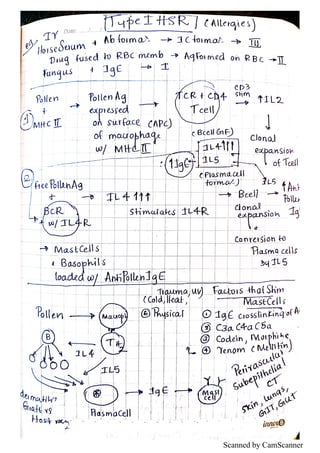 Type I HSR / (Allergies)
eg. IV
Horse Serum + Ab format → IC format → III
Drug fused to RBC memb → Ag formed on RBC → II
Fungus + IgE → I
Pollen + MHC II
→ Pollen Ag expressed on surface (APC) of macrophage w/ MHC II
→ TCR + CD4 T cell
CD3 stim → ↑IL2
↓
Clonal expansion of T cell
1
(B cell GF)
IL4 ↑↑
IL5
(Plasma cell format)
↑IgE
2
Free Pollen Ag + BCR w/ IL4R
→ IL4 ↑↑↑
stimulates IL4R
→ B cell clonal expansion
IL5
↑ Anti Pollen Ig
Conversion to Plasma cells by IL5
→ Mast Cells + Basophils
loaded w/ Anti Pollen IgE
Trauma, UV
(Cold, Heat,
⑥ Physical
Factors that Stim Mast Cells
① IgE crosslinking of A
② C3a C4a C5a
③ Codein, Morphine
④ Venom (Melittin)
Perivascular
Subepithelial CT
Skin, Lungs, GIT, GUT
Pollen →
B
IL4
IL5
Plasma cell
→ IgE →
Mast cell
Scanned by CamScanner